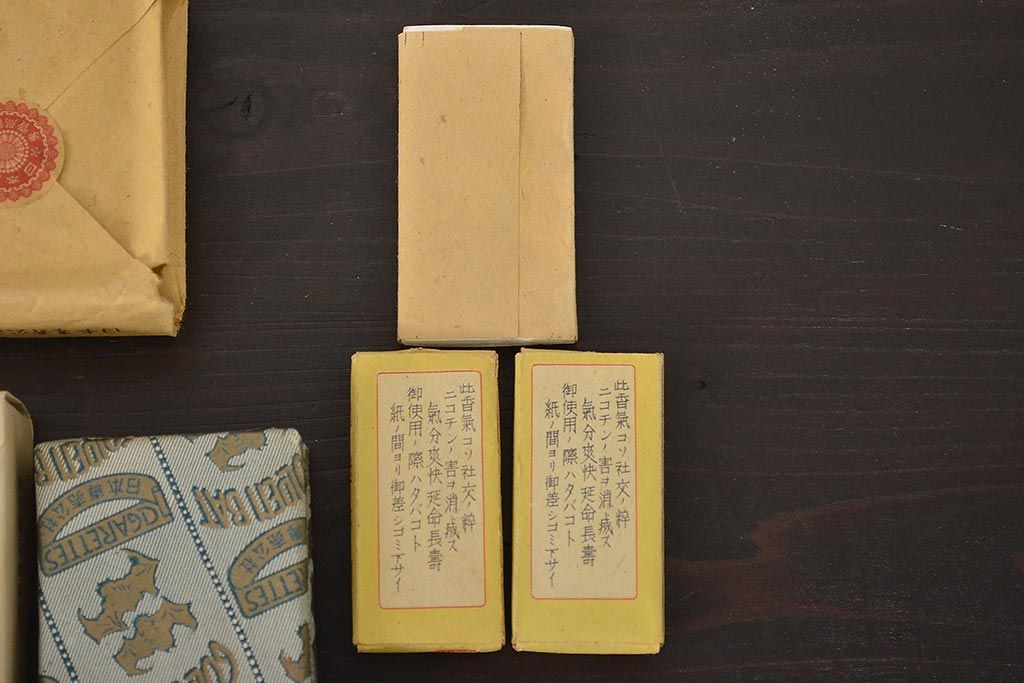 此香氣コソ社交ノ粹
ニコチンノ害ヲ消滅ス
氣分爽快延命長壽
御使用ノ際ハタバコト
紙ノ間ヨリ御差シゴミ下サイ
此香氣コソ社交ノ粹
ニコチンノ害ヲ消滅ス
氣分爽快延命長壽
御使用ノ際ハタバコト
紙ノ間ヨリ御差シゴミ下サイ
GOLDEN BAT
日本專売公社
CIGARETTES
GOLDEN BAT